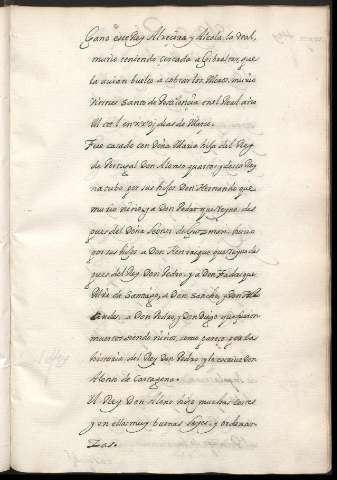 Gano este Rey Algezira y Alcala la Real,
murio teniendo cercada a Gibraltar, que
la auian buelto a cobrar los Moros, murio
Viernes Santo de Pestilencia en el Real año
M ccc l en xxvj dias de Março.
Fue casado con Doña Maria hija del Rey
de Portugal Don Alonso quarto, y desta Rey
na tubo por sus hijos Don Hernando que
murio niño, y a Don Pedro que Reyno des
pues del Doña Leonor de Guzman, huuo
por sus hijos a Don Henrrique que reyno des
pues del Rey Don Pedro, y a Don Fadrique
Mtre de Santiago, a Don Sancho, y Don
a Don Pedro, y Don Diego que fueron
muertos siendo niños, como parece por la
historia del Rey Don Pedro, y lo escriue Don
Alonso de Cartagena.
El Rey Don Alonso hizo muchas cortes
y en ellas muy buenas leyes, y ordenan
zas.